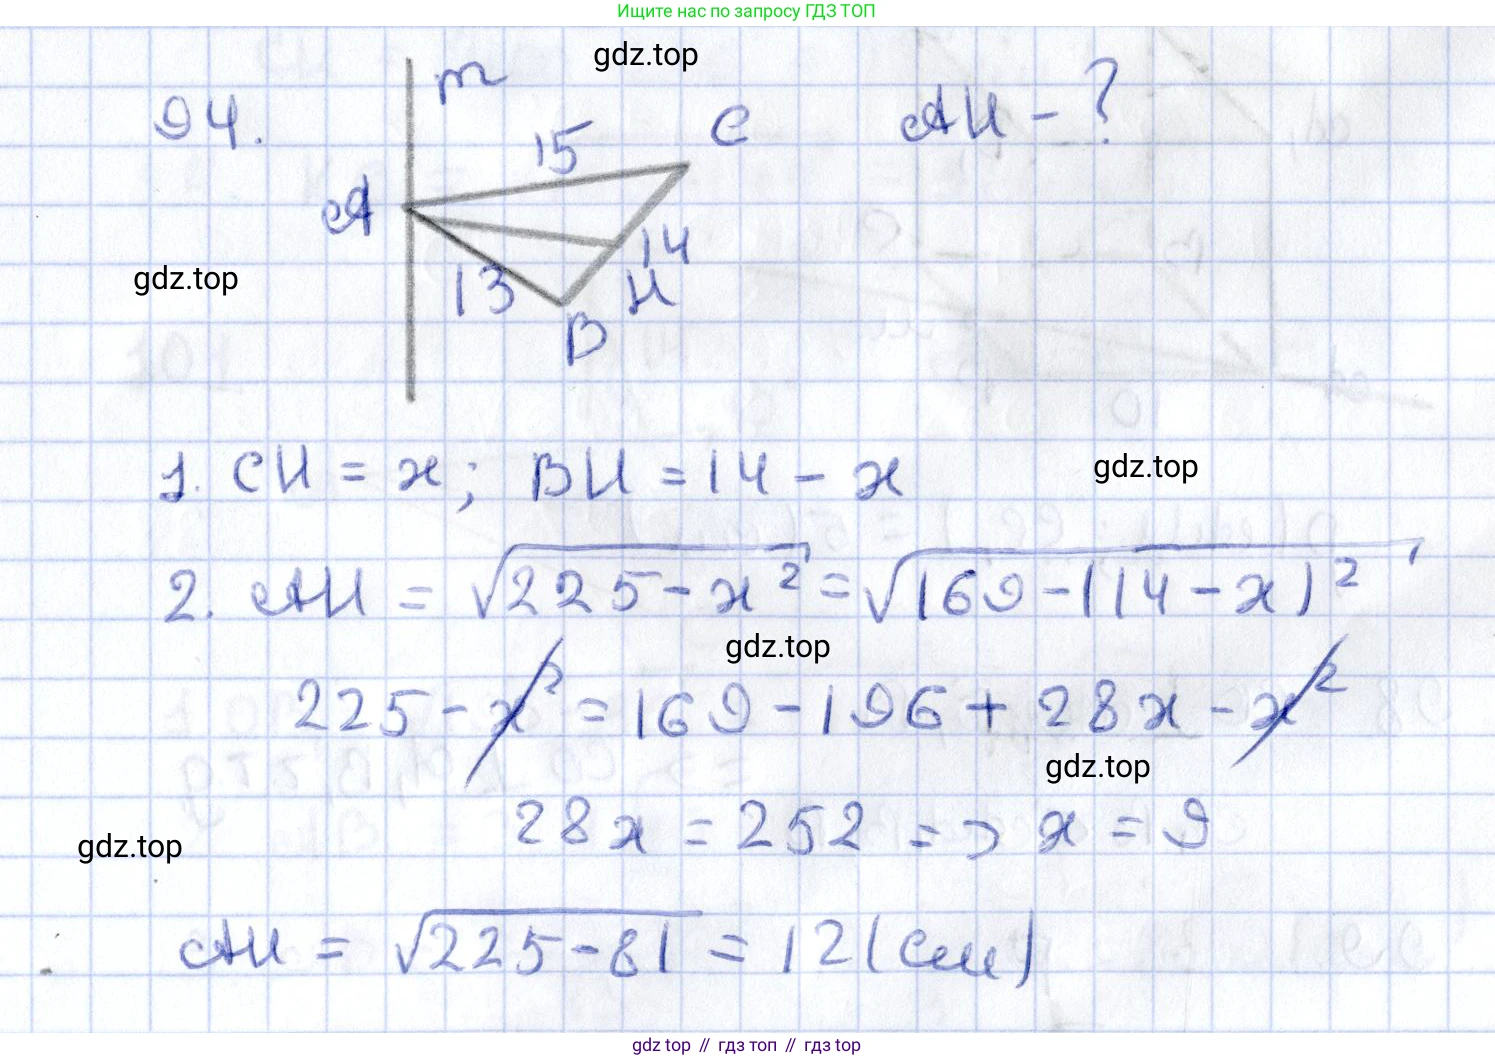 Ищите нас по запросу ГДЗ ТОП
gdz.top
94.
m
15
C
AH - ?
A
14
gdz.top
13
H
B
1. CH = x; BH = 14 - x
gdz.top
2. AH = √225 - x² = √169 - (14 - x)²
gdz.top
225 - x² = 169 - 196 + 28x - x²
gdz.top
28x = 252 => x = 9
gdz.top
AH = √225 - 81 = 12 (см)
gdz top // гдз топ // гдз top